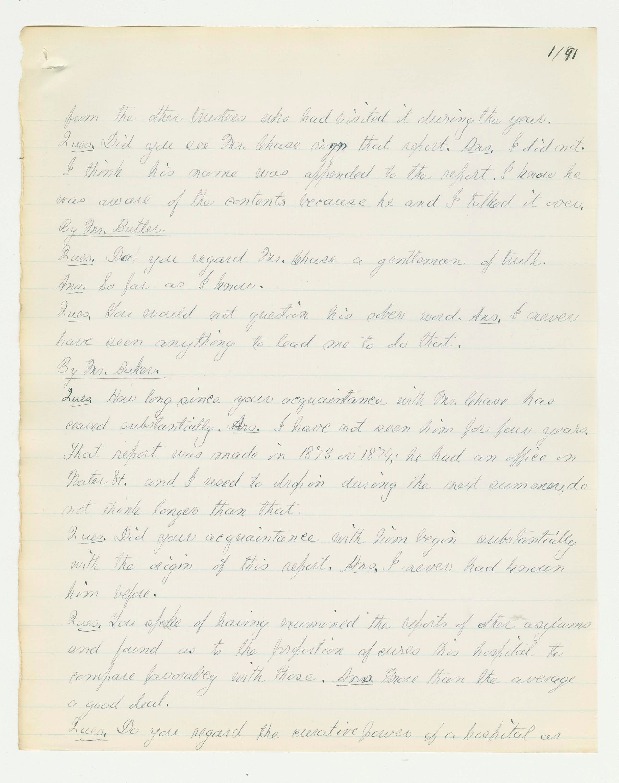 1/91
from the other trustees who had visited it during the year.
Ques. Did you see Mr. Chase sign that report. Ans. I did not.
I think his name was appended to the report. I know he
was aware of the contents because he and I talked it over.
By Mr. Butler.
Ques. Do you regard Mr. Chase a gentleman of truth.
Ans. So far as I know.
Ques. You would not question his own word. Ans. I never
have seen anything to lead me to do that.
By Mr.
Ques. How long since your acquaintance with Mr. Chase has
ceased substantially. Ans. I have not seen him for four years.
That report was made in 1873 or 1874; he had an office on
Water St. and I used to drop in during the next summer, do
not think longer than that.
Ques. Did your acquaintance with him begin substantially
with the origin of this report. Ans. I never had known
him before.
Ques. You spoke of having examined the reports of other asylums
and found as to the proportion of cures this hospital to
compare favorably with those. Ans. More than the average
a good deal.
Ques. Do you regard the curative power of a hospital as